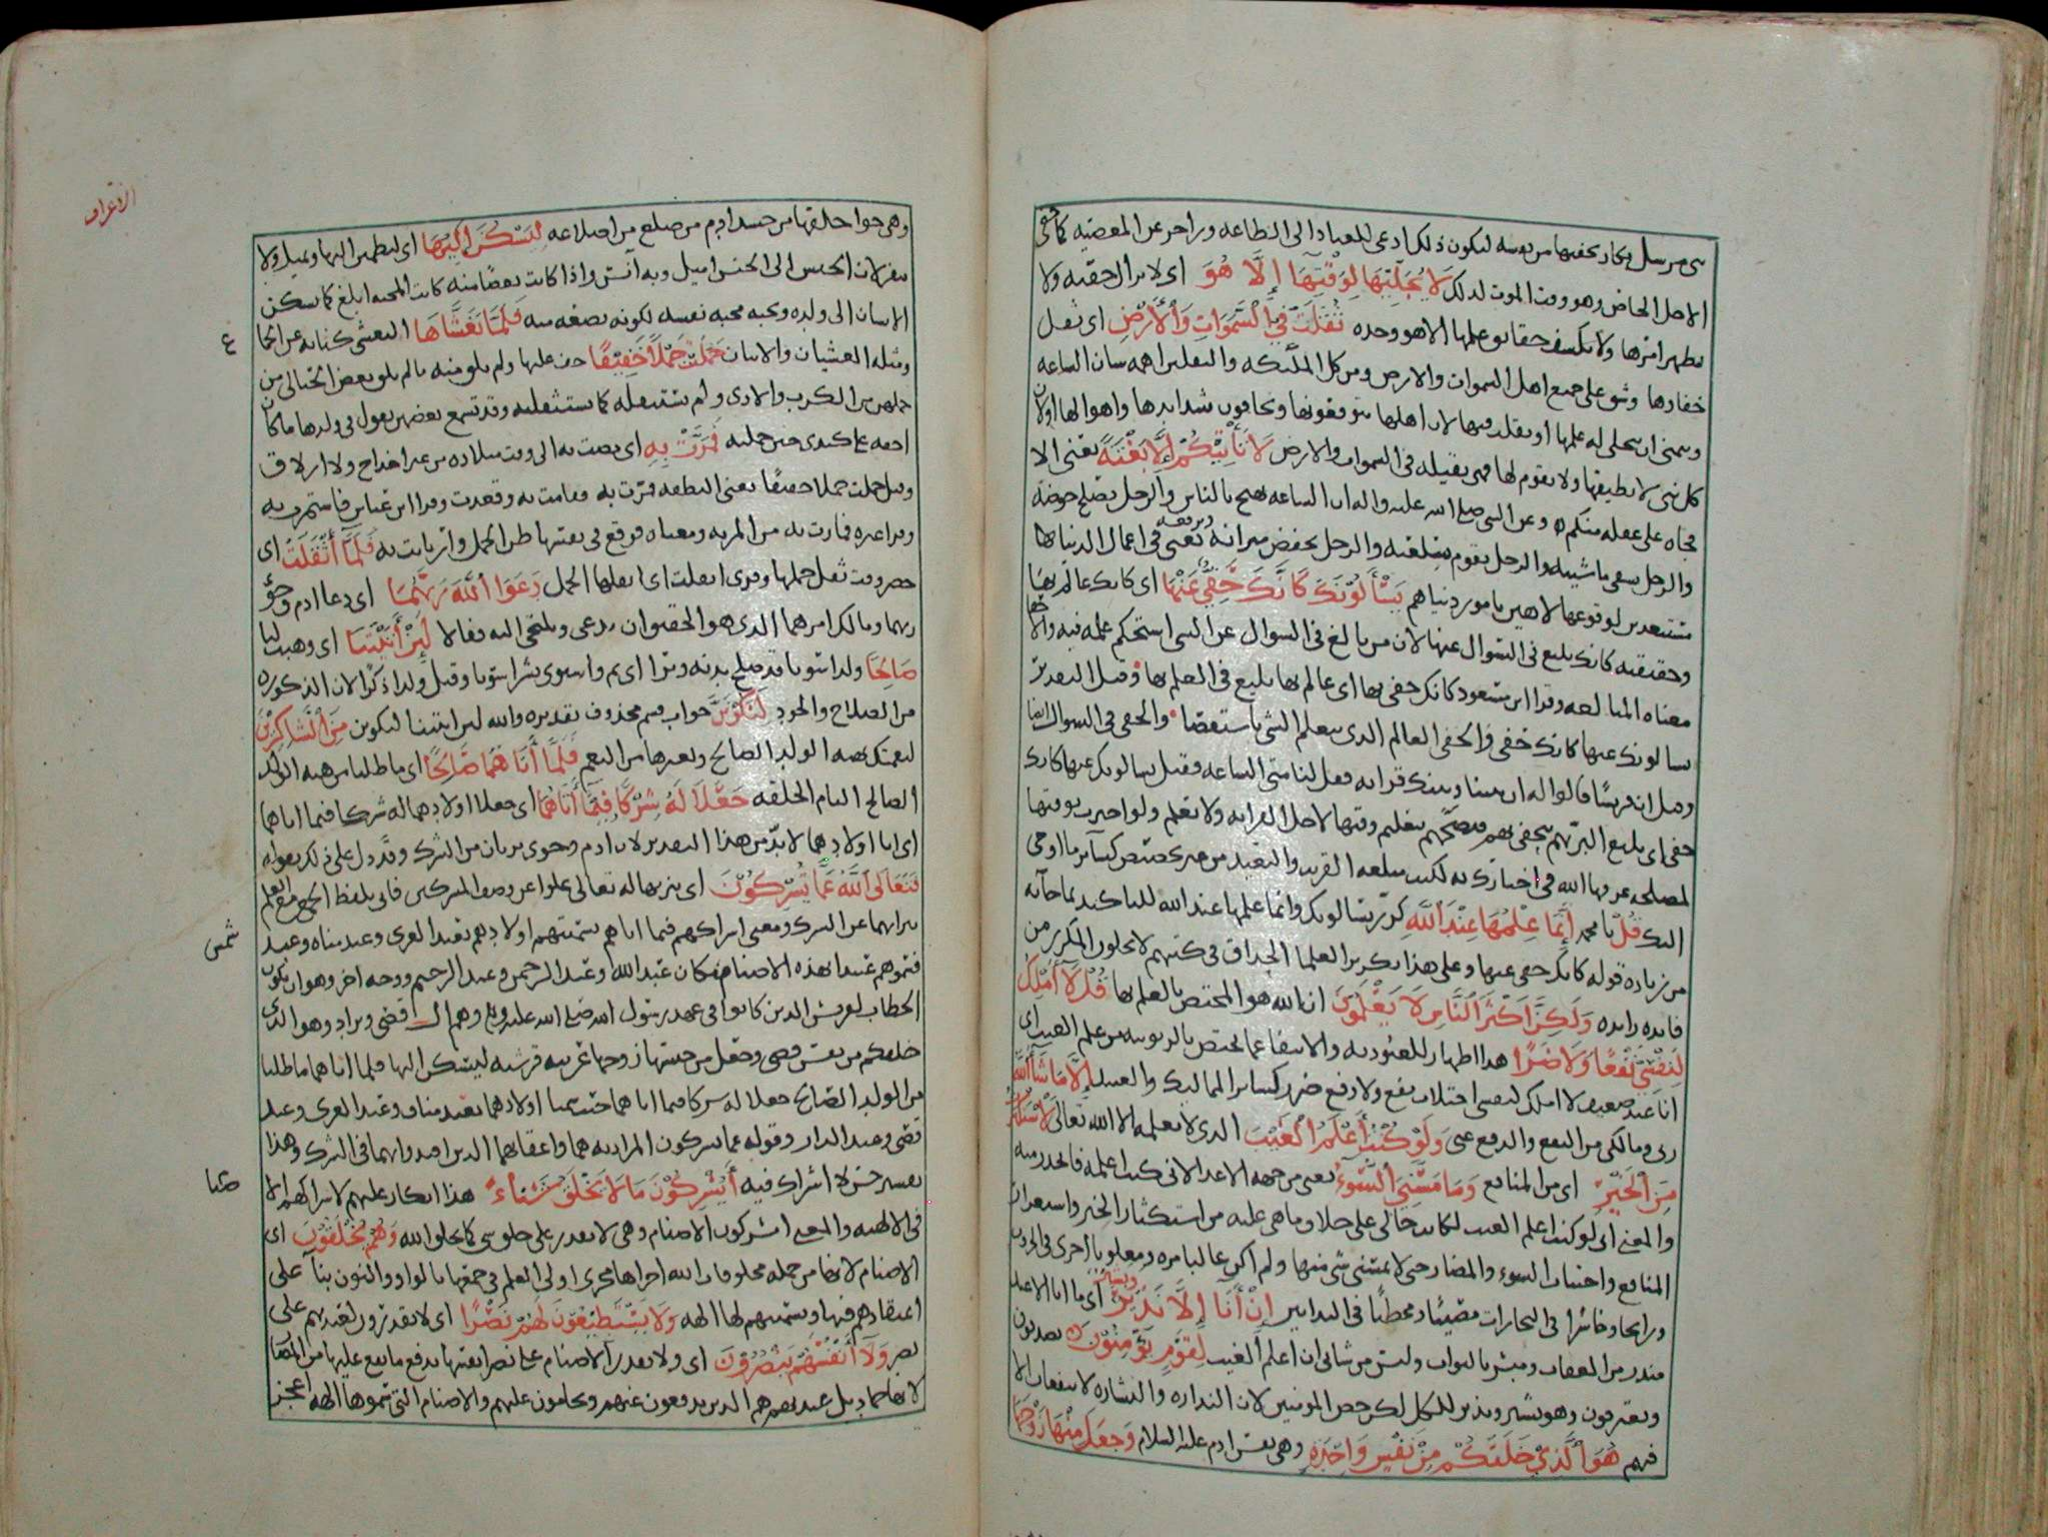 الاجل الخاص وهو وقت الموت لذلك لَا يُجَلِّيهَا لِوَقْتِهَا إِلَّا هُوَ اى لايزال خفيه ولا
يظهر امرها ولا يكشف خفا علمها الا هو وحده ثَقُلَتْ فِي السَّمَوَاتِ وَالْأَرْضِ اى ثقل
خفاوها وشق على جميع اهل السموات والارض ومن كل الملئكه والثقلين اهمه شان الساعه
ويتمنى ان يتجلى له علمها او ثقلت فيها لان اهلها يتوقعونها ويخافون شدايدها واهوالها اولان
كل شى لا يطيقها ولا يقوم لها فهى ثقيله فى السموات والارض لَا تَأْتِيكُمْ إِلَّا بَغْتَةً يعنى الا
فجاه على غفله منكم وعن النبى صلى الله عليه واله ان الساعه تهيج بالناس والرجل يصلح حوضه
والرجل يسقى ماشيته والرجل يقوم سلعته والرجل يخفض ميزانه ويرفعه يعنى فى اعمال الدنيا
لوقوعها لاهين بامور دنياهم يَسْأَلُونَكَ كَأَنَّكَ حَفِيٌّ عَنْهَا اى كانك عالم بها
وحقيقته كانك بليغ فى السوال عنها لان من بالغ فى السوال عن الشى استحكم علمه فيه
معناه المبالغه وقرا ابن مسعود كانك حفى بها اى عالم بها بليغ فى العلم بها وقيل التقدير
يسالونك عنها كانك حفى والحفى العالم الذى يعلم الشى باستقصا والحفى فى السوال
وقيل ان قريشا قالوا له ان بيننا وبينك قرابه فقل لنا متى الساعه فقيل يسالونك عنها كانك
حفى اى بليغ البر بهم فتخصهم بتعليم وقتها لاجل القرابه ولا تعلم ولو اخبرت بوقتها
لمصلحه عرفها الله فى اخبارك به لكنت مبلغه القريب والبعيد من غير تخصيص كساير ما اوحى
اليك قُلْ يا محمد إِنَّمَا عِلْمُهَا عِنْدَ اللَّهِ كرر يسالونك وانما علمها عند الله للتاكيد لما جا به
من زياده قوله كانك حفى عنها وعلى هذا تكرير العلما الحذاق فى كتبهم لا يخلون المكرر من
فايده زايده وَلَكِنَّ أَكْثَرَ النَّاسِ لَا يَعْلَمُونَ ان الله هو المختص بالعلم بها قُلْ لَا أَمْلِكُ
لِنَفْسِي نَفْعًا وَلَا ضَرًّا هذا اظهار للعبوديه والانتفا عما يختص بالربوبيه من علم الغيب اى
انا عبد ضعيف لا املك لنفسى اجتلاب نفع ولا دفع ضرر كساير المماليك والعبيد إِلَّا مَا شَاءَ اللَّهُ
ربى ومالكى من النفع والدفع عنى وَلَوْ كُنْتُ أَعْلَمُ الْغَيْبَ الذى لا يعلمه الا الله تعالى لَاسْتَكْثَرْتُ
مِنَ الْخَيْرِ اى من المنافع وَمَا مَسَّنِيَ السُّوءُ يعنى من جهه الاعدا لانى كنت اعلمه فاتحذر منه
والمعنى اى لو كنت اعلم الغيب لكانت حالى على خلاف ما هى عليه من استكثار الخير
المنافع واجتناب السوء والمضار حتى لا يمسنى شى منها ولم اكن غالبا مره ومغلوبا اخرى فى الحروب
ورابحا وخاسرا فى التجارات مصيبا ومخطئا فى التدابير إِنْ أَنَا إِلَّا نَذِيرٌ وبشير اى ما انا الا عبد
منذر من العقاب ومبشر بالثواب وليس من شانى ان اعلم الغيب لِقَوْمٍ يُؤْمِنُونَ يصدقون
ويعترفون وهو بشير ونذير للكل لكن خص المومنين لان النذاره والبشاره لا ينفعان الا
فيهم هُوَ الَّذِي خَلَقَكُمْ مِنْ نَفْسٍ وَاحِدَةٍ وهى نفس ادم عليه السلام وَجَعَلَ مِنْهَا زَوْجَهَا
الاعراف
وهى حوا خلقها من جسد ادم من ضلع من اضلاعه لِيَسْكُنَ إِلَيْهَا اى ليطمئن اليها ويميل ولا
ينفر لان الجنس الى الجنس اميل وبه آنس واذا كانت بعضا منه كانت المحبه ابلغ كما يسكن
الانسان الى ولده ويحبه محبه نفسه لكونه بضعه منه فَلَمَّا تَغَشَّاهَا التغشى كنايه عن الجماع
ومثله الغشيان والاتيان حَمَلَتْ حَمْلًا خَفِيفًا خف عليها ولم يلق منه ما لم يلق بعض الحبالى من
حملهن من الكرب والاذى ولم تستثقله كما يستثقلنه وقد تسمع بعضهن يقول فى ولدها ما كان
اخفه على كبدى حين حملته فَمَرَّتْ بِهِ اى مضت به الى وقت ميلاده من غير اخداج ولا ازلاق
وقيل حملت حملا خفيفا يعنى النطفه فمرت به فقامت به وقعدت وقرا ابن عباس فاستمرت به
وقرا غيره فمارت به من المريه ومعناه فوقع فى نفسها ظن الحمل وارتابت به فَلَمَّا أَثْقَلَتْ اى
حضر وقت ثقل حملها وقرى اثقلت اى اثقلها الحمل دَعَوَا اللَّهَ رَبَّهُمَا اى دعا ادم وحوّا
ربهما ومالك امرهما الذى هو الحقيق ان يدعى ويلتجى اليه فقالا لَئِنْ آتَيْتَنَا اى وهبت لنا
صَالِحًا ولدا سويا قد صلح بدنه وبرا اى تم واستوى بشرا سويا وقيل ولدا ذكرا لان الذكوره
من الصلاح والجوده لَنَكُونَنَّ جواب قسم محذوف تقديره والله لئن اتيتنا لنكونن مِنَ الشَّاكِرِينَ
لنعمتك بهبه الولد الصالح وبغيرها من النعم فَلَمَّا آتَاهُمَا صَالِحًا اى ما طلبا من هبه الولد
الصالح التام الخلقه جَعَلَا لَهُ شِرْكًا فِيمَا آتَاهُمَا اى جعلا اولادهما له شركا فيما اتاهما
اى اتا اولادهما لابد من هذا التقدير لان ادم وحوى بريان من الشرك وقد دل على ذلك بقوله
فَتَعَالَى اللَّهُ عَمَّا يُشْرِكُونَ اى تنزيها له تعالى علوا عن وصف المشركين فاتى بلفظ الجمع
تبراهما عن الشرك ومعنى اشراكهم فيما اتاهم تسميتهم اولادهم بعبد العزى وعبد مناه وعبد
شمس
فسموهم عبيدا لهذه الاصنام مكان عبد الله وعبد الرحمن وعبد الرحيم ووجه اخر وهو ان يكون
الخطاب لقريش الذين كانوا فى عهد رسول الله صلى الله عليه وسلم وهم ال قصى ويراد وهو الذى
خلقكم من نفس قصى وجعل من جنسها زوجها عربيه قرشيه ليسكن اليها فلما اتاهما ما طلبا
من الولد الصالح جعلا له شركا فيما اتاهما حيث سميا اولادهما بعبد مناف وعبد العزى وعبد
قصى وعبد الدار وقوله عما يشركون المراد به هما واعقابهما الذين اقتدوا بهما فى الشرك وهذا
تفسير حسن لا اشراك فيه أَيُشْرِكُونَ مَا لَا يَخْلُقُ شَيْئًا هذا انكار عليهم لاشراكهم
فى الالهيه والمعنى ايشركون الاصنام وهى لا تقدر على خلق شى كما يخلق الله وَهُمْ يُخْلَقُونَ اى
الاصنام لانها من جمله مخلوقات الله اجراها مجرى اولى العلم فى جمعها بالواو والنون بنا على
اعتقادهم فيها وتسميتهم لها الهه وَلَا يَسْتَطِيعُونَ لَهُمْ نَصْرًا اى لا يقدرون لعبدتهم على
نصر وَلَا أَنْفُسَهُمْ يَنْصُرُونَ اى ولا تقدر الاصنام على نصر انفسها بدفع ما يقع عليها من
لانها جماد بل عبدتهم هم الذين يدفعون عنهم ويحامون عليهم والاصنام التى سموها الهه اعجز